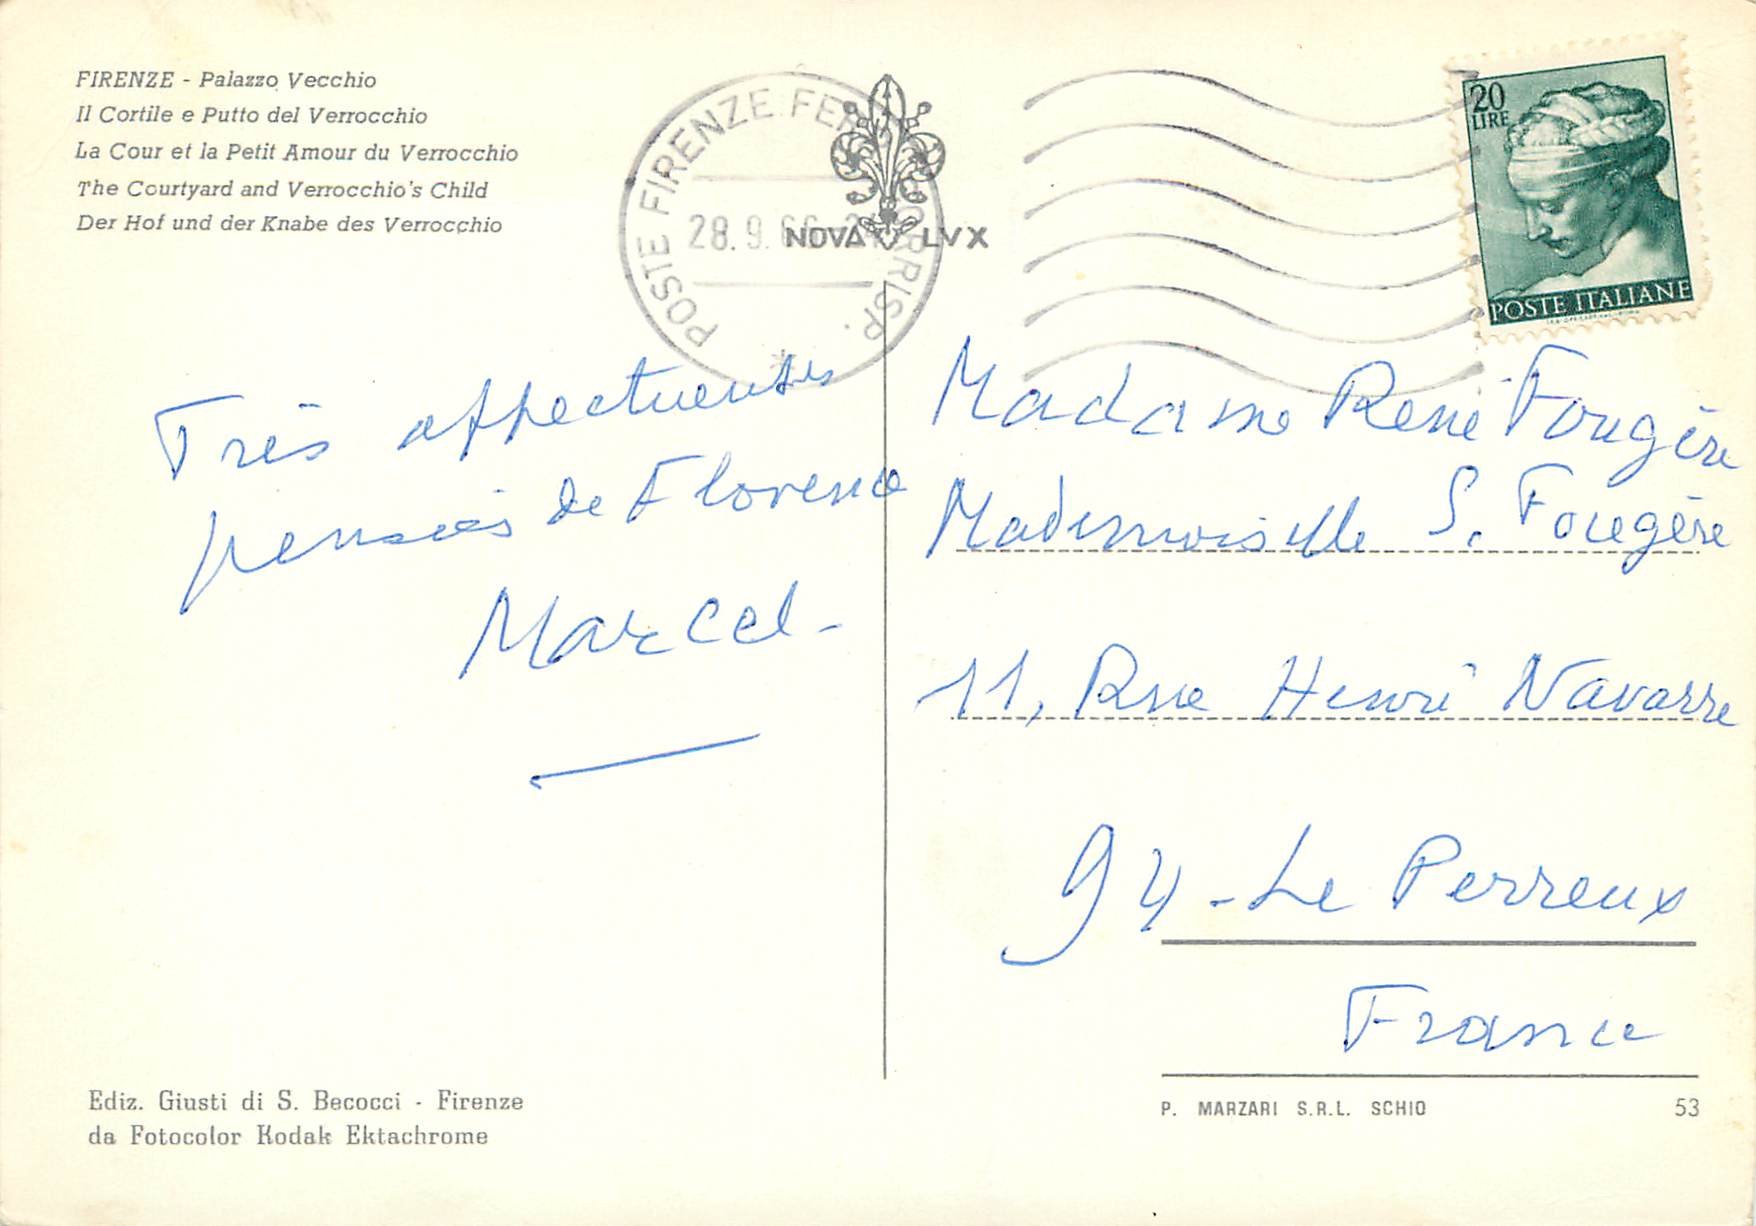 FIRENZE - Palazzo Vecchio
Il Cortile e Putto del Verrocchio
La Cour et la Petit Amour du Verrocchio
The Courtyard and Verrocchio's Child
Der Hof und der Knabe des Verrocchio
POSTE FIRENZE FERR CORRISP.
28.9.66
NOVA LVX
20
LIRE
POSTE ITALIANE
Très affectueuses
pensées de Florence
Marcel-
Madame René Fougère
Mademoiselle S. Fougère
11, Rue Henri Navarre
94-Le Perreux
France
Ediz. Giusti di S. Becocci - Firenze
da Fotocolor Kodak Ektachrome
P. MARZARI S.R.L. SCHIO
53